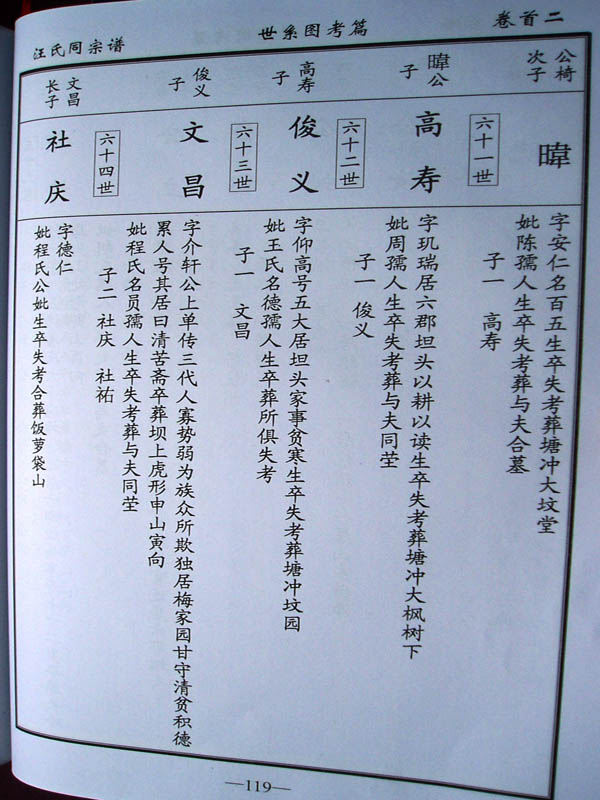 卷首二
世系图考篇
汪氏同宗谱
公椅
次子
暐
字安仁名百五生卒失考葬塘冲大坟堂
妣陈孺人生卒失考葬与夫合墓
子一 高寿
六十一世
暐公
子
高寿
字玑瑞居六郡坦头以耕以读生卒失考葬塘冲大枫树下
妣周孺人生卒失考葬与夫同茔
子一 俊义
六十二世
高寿
子
俊义
字仰高号五大居坦头家事贫寒生卒失考葬塘冲坟园
妣王氏名德孺人生卒葬所俱失考
子一 文昌
六十三世
俊义
子
文昌
字介轩公上单传三代人寡势弱为族众所欺独居梅家园甘守清贫积德
累人号其居曰清苦斋卒葬坝上虎形申山寅向
妣程氏名员孺人生卒失考葬与夫同茔
子二 社庆 社祐
六十四世
文昌
长子
社庆
字德仁
妣程氏公妣生卒失考合葬饭萝袋山
—119—